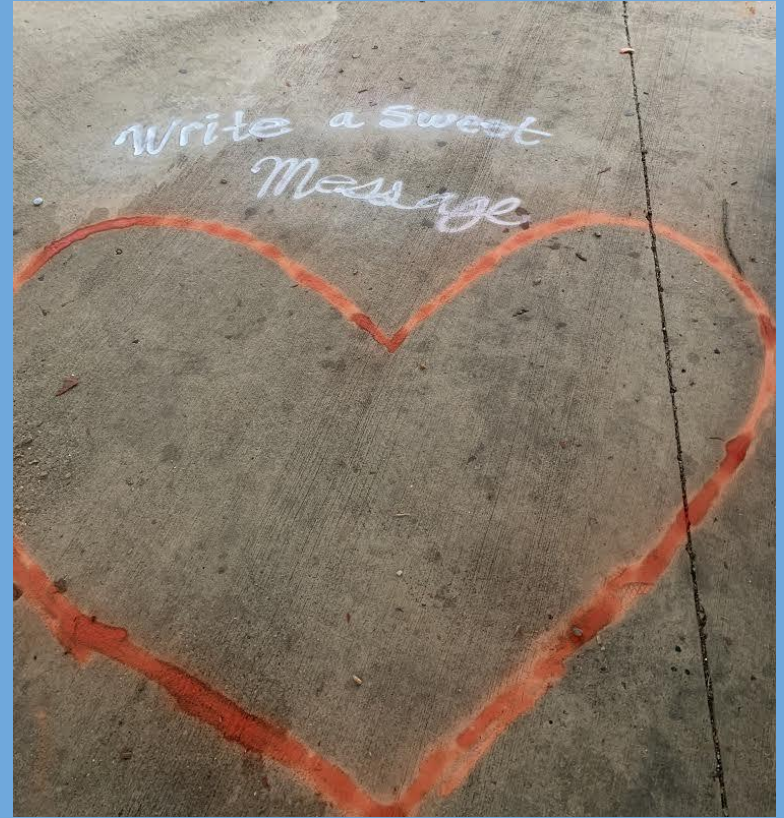 Write a Sweet
Message